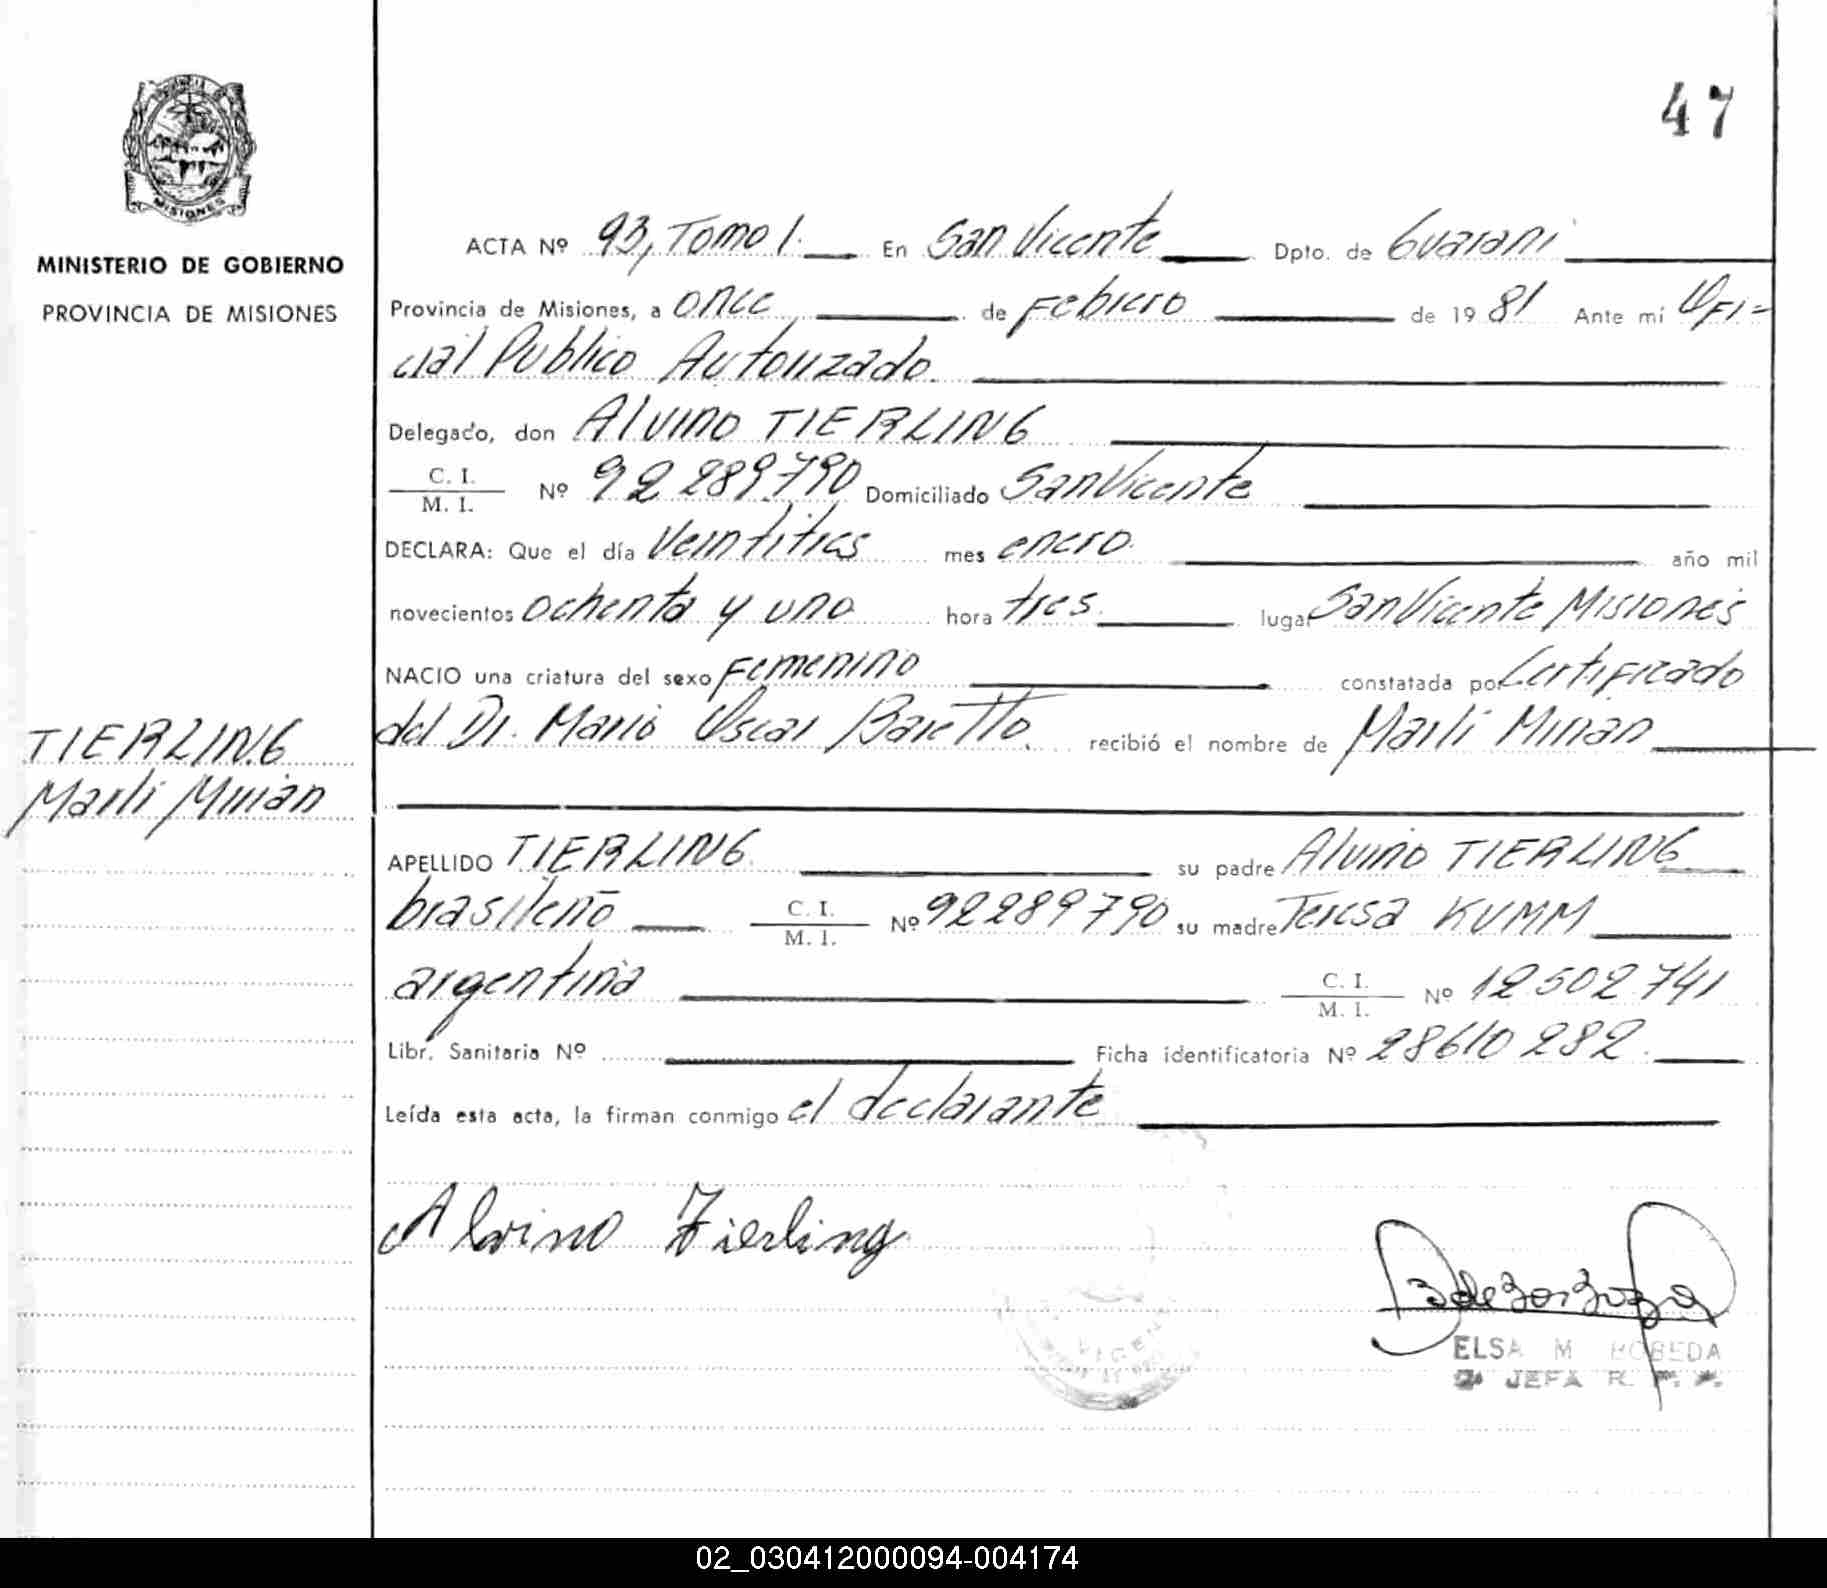 47
MINISTERIO DE GOBIERNO
PROVINCIA DE MISIONES
ACTA Nº 93, Tomo 1. En San Vicente Dpto. de Guarani
Provincia de Misiones, a once de Febrero de 19 81 Ante mí Ofi=
cial Publico Autorizado.
Delegado, don Alvino TIERLING
C. I.
M. I.
Nº 92 289.790 Domiciliado San Vicente
DECLARA: Que el día Veintitres mes enero. año mil
novecientos Ochenta y uno hora tres. lugar San Vicente Misiones
NACIO una criatura del sexo Femenino constatada por Certificado
del Dr. Mario Oscar Baretto. recibió el nombre de Marli Mirian
TIERLING
Marli Mirian
APELLIDO TIERLING. su padre Alvino TIERLING
brasileño C. I. M. I. Nº 92289790 su madre Teresa KUMM
argentina C. I. M. I. Nº 12.502.741
Libr. Sanitaria Nº Ficha identificatoria Nº 28610 282.
Leída esta acta, la firman conmigo el declarante
Alvino Tierling
ELSA M BOBEDA
JEFA R. P.
02_030412000094-004174